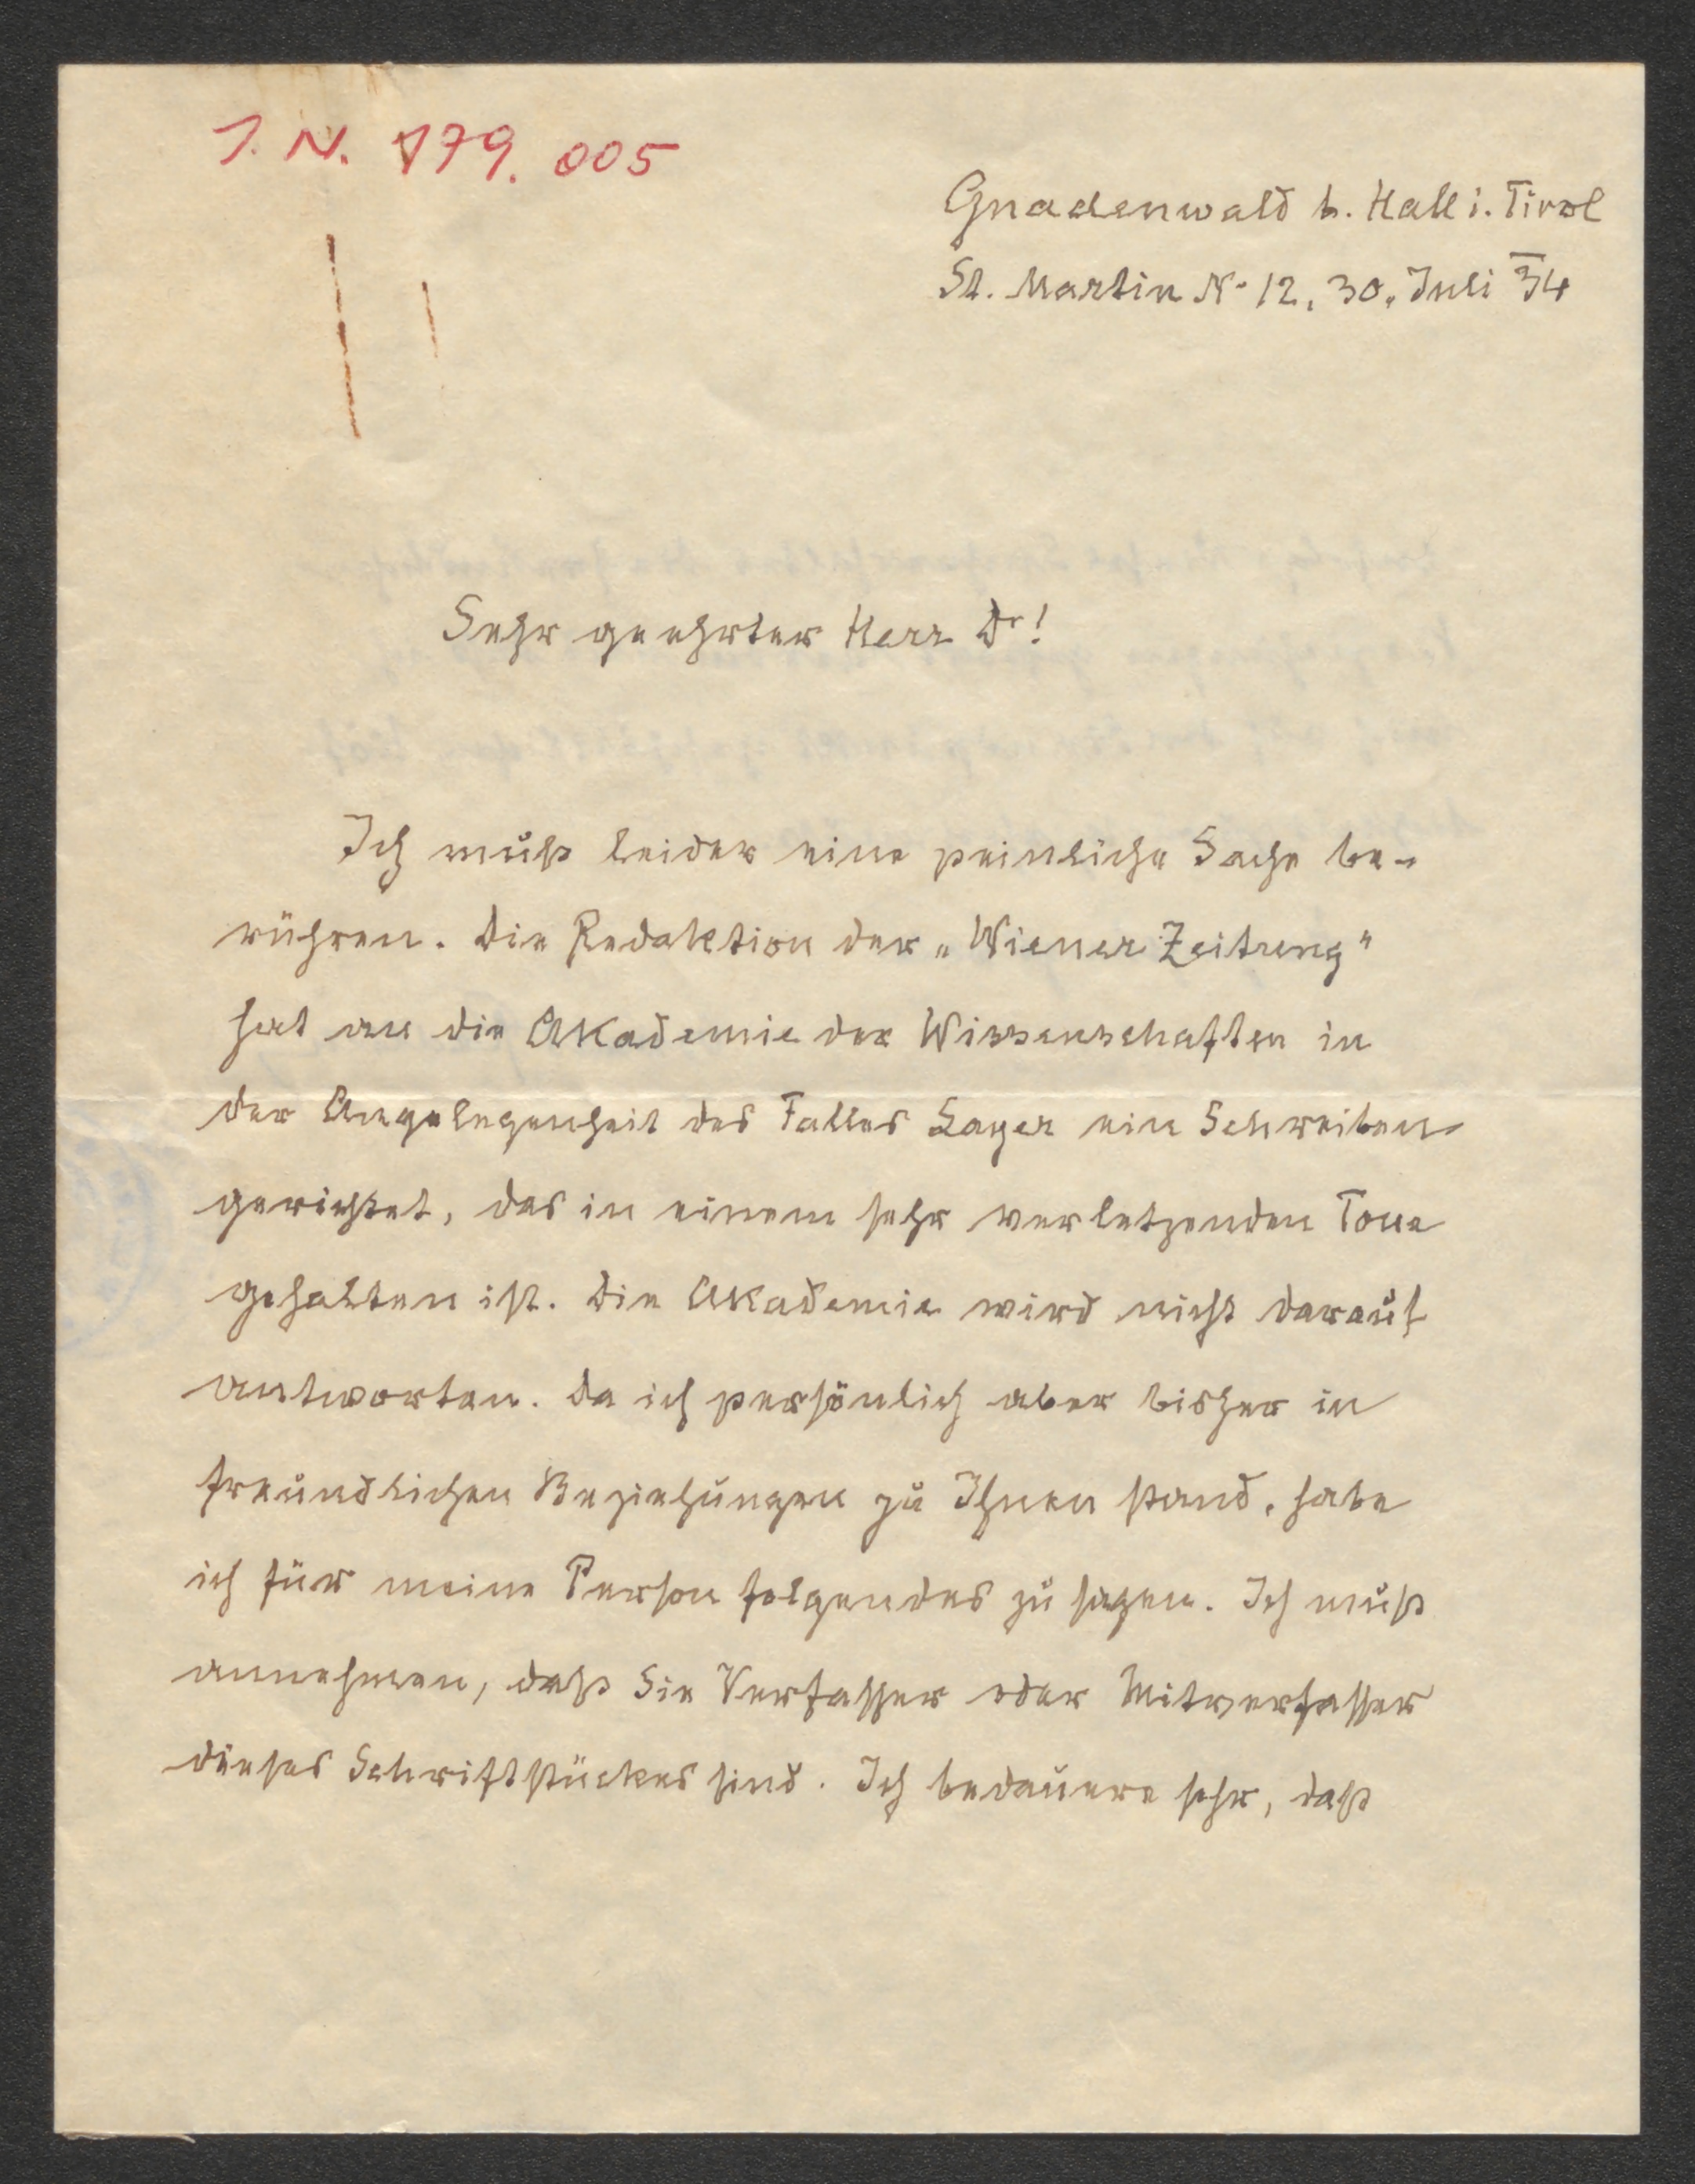 I. N. 179.005
Gnadenwald b. Hall i. Tirol
St. Martin No 12, 30. Juli 34
Sehr geehrter Herr Dr!
Ich muß leider eine peinliche Sache be-
rühren. Die Redaktion der „Wiener Zeitung"
hat an die Akademie der Wissenschaften in
der Angelegenheit des Falles Layer ein Schreiben
gerichtet, das in einem sehr verletzenden Tone
gehalten ist. Die Akademie wird nicht darauf
antworten. Da ich persönlich aber bisher in
freundlichen Beziehungen zu Ihnen stand, habe
ich für meine Person folgendes zu sagen. Ich muß
annehmen, daß Sie Verfasser oder Mitverfasser
dieses Schriftstückes sind. Ich bedauere sehr, daß